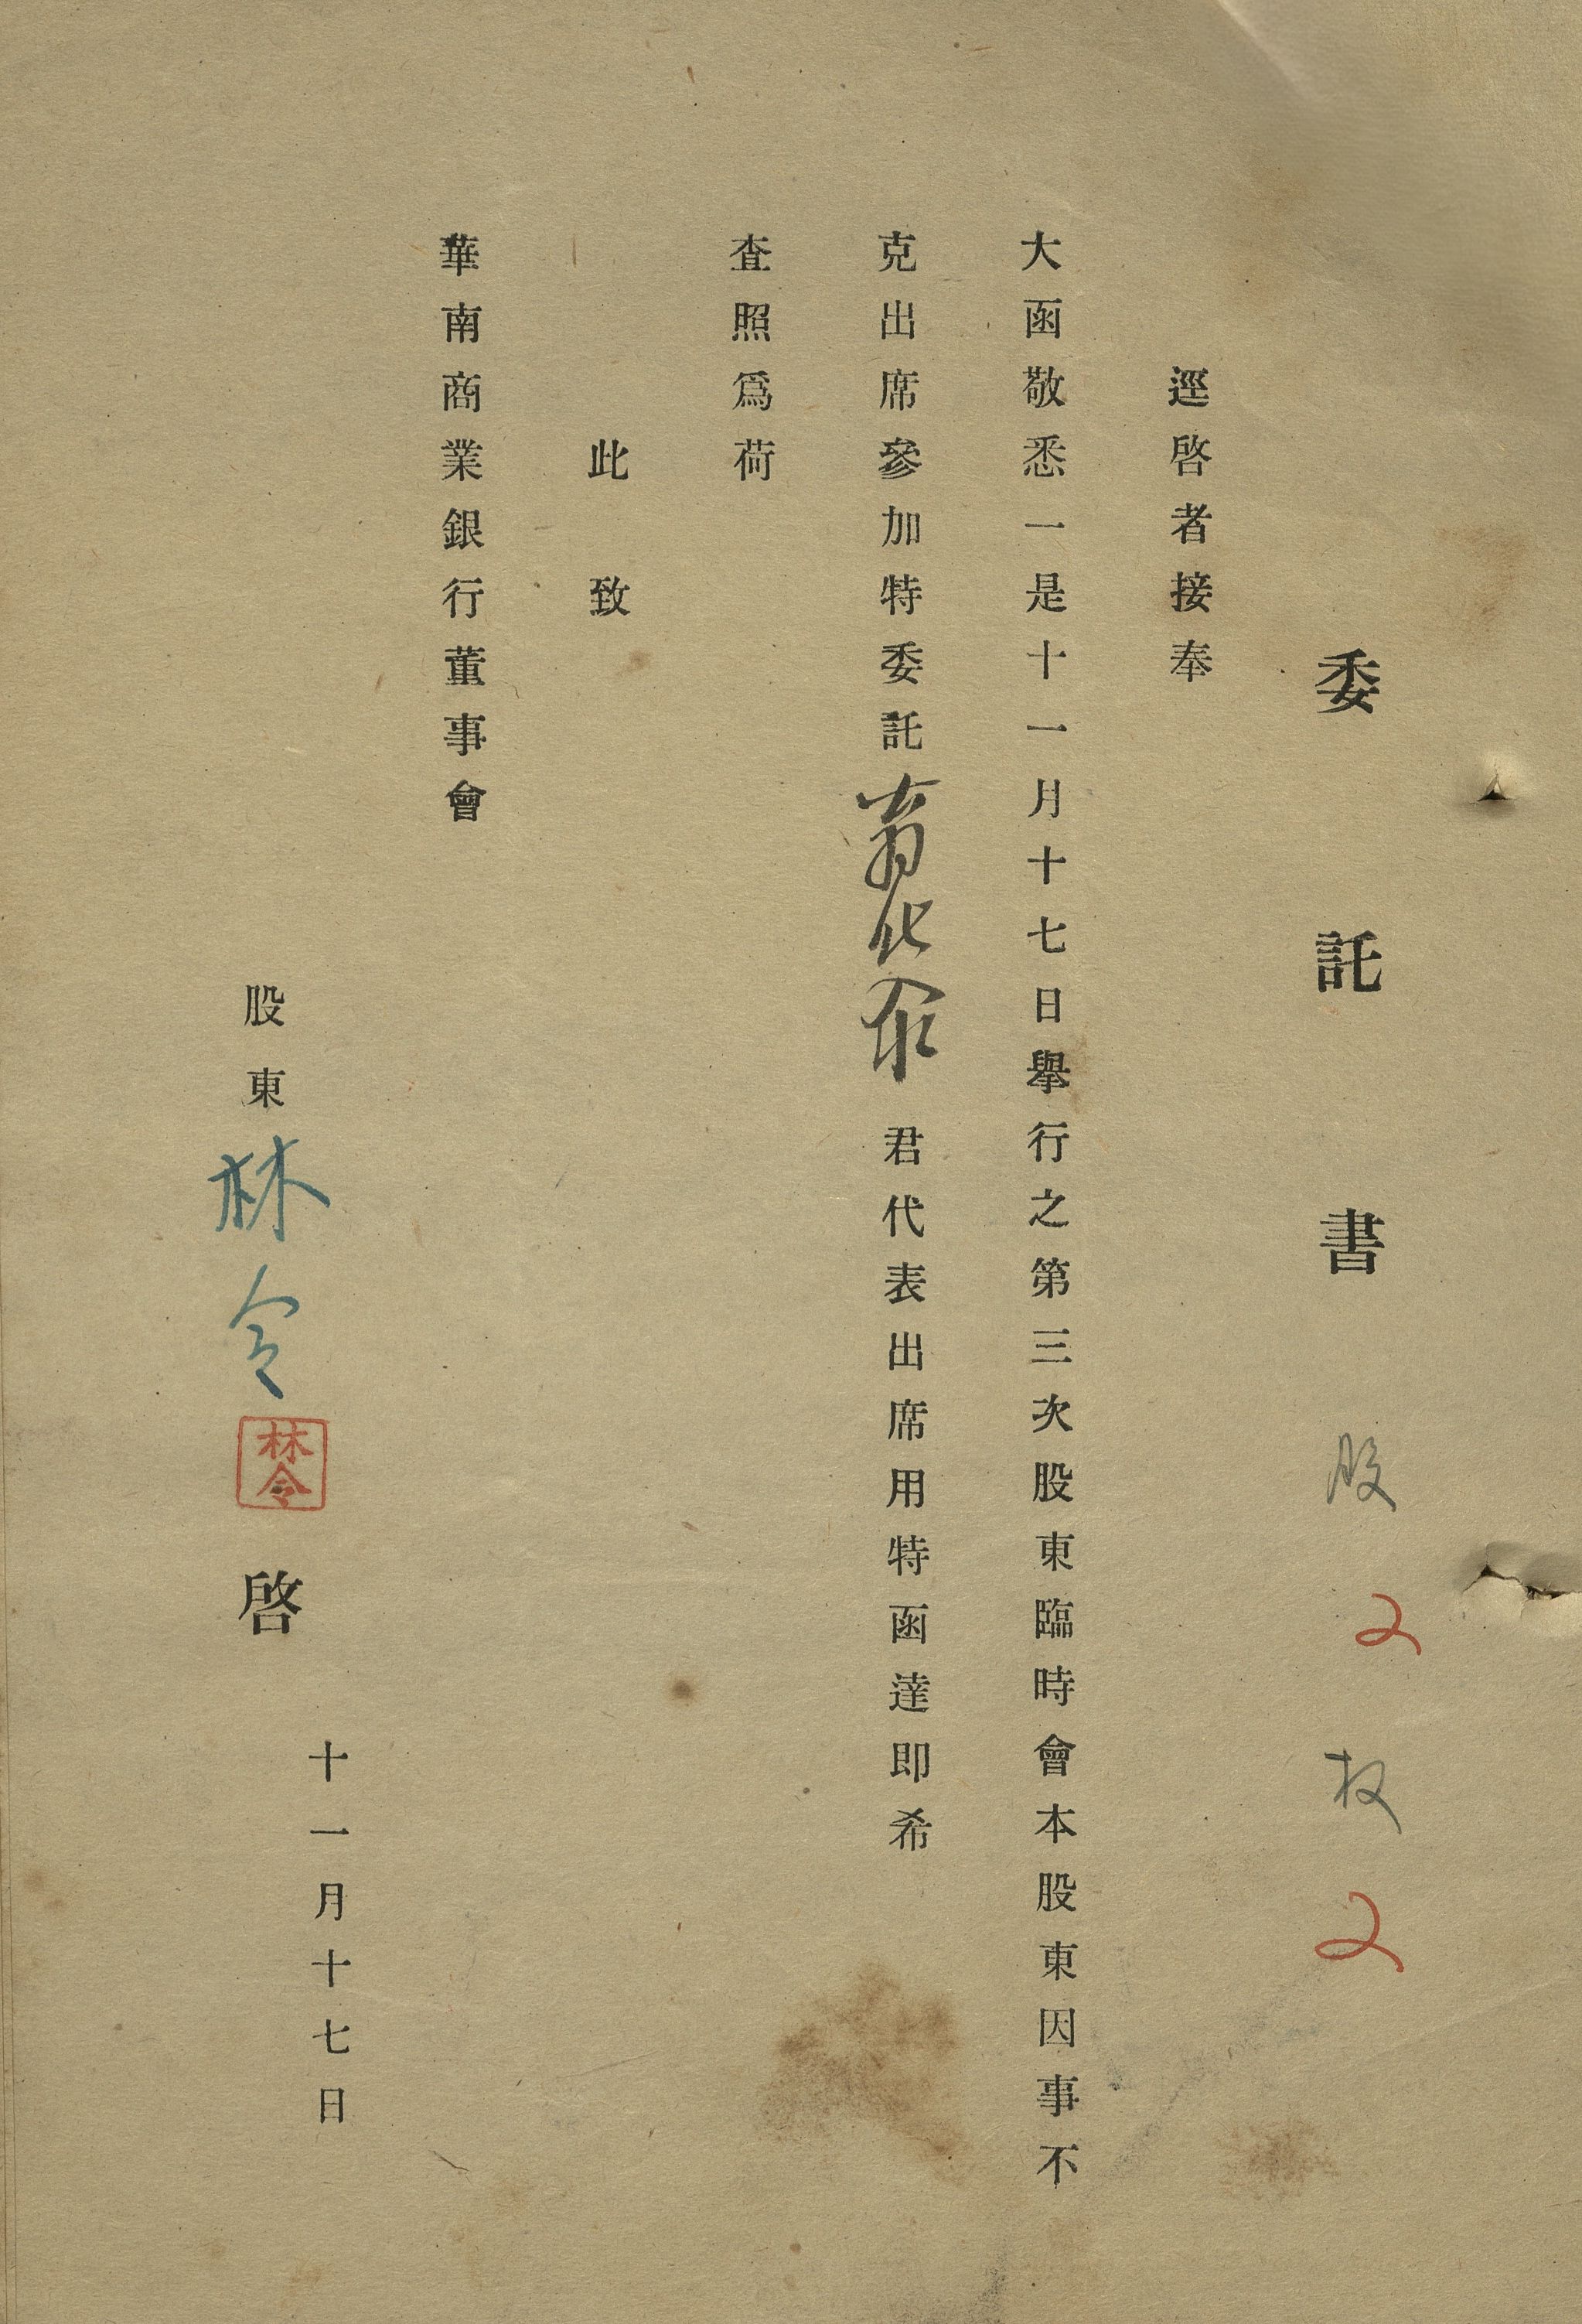 委託書 股 2 权 2
逕啓者接奉
大函敬悉一是十一月十七日擧行之第三次股東臨時會本股東因事不
克出席參加特委託 君代表出席用特函達即希
査照爲荷
此致
華南商業銀行董事會
股東林令 林令 啓
十一月十七日